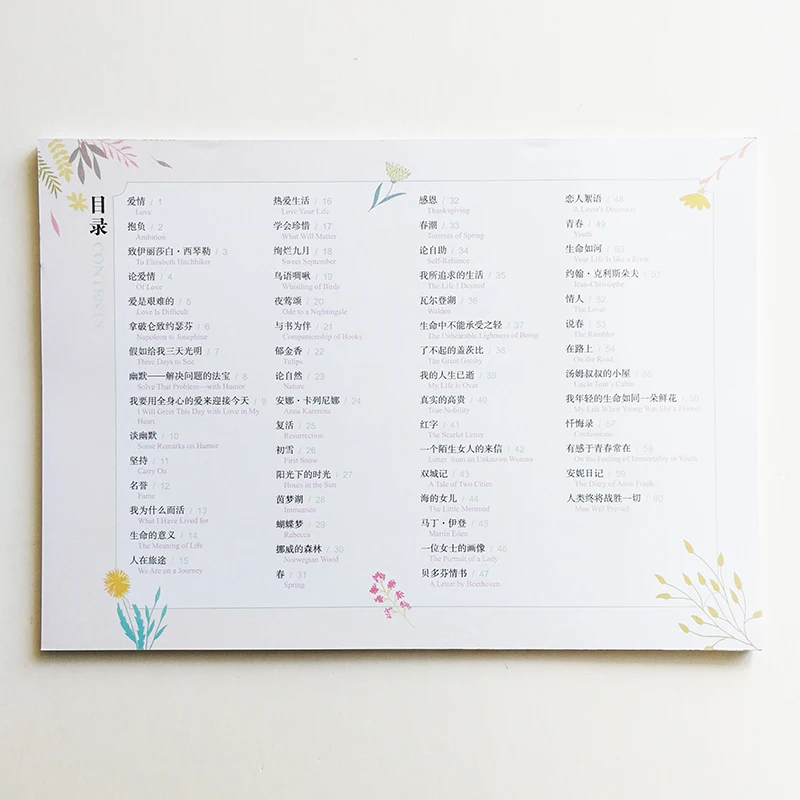 目录
CONTENTS
爱情 / 1
Love
抱负 / 2
Ambition
致伊丽莎白·西琴勒 / 3
To Elizabeth Hitchhiker
论爱情 / 4
Of Love
爱是艰难的 / 5
Love Is Difficult
拿破仑致约瑟芬 / 6
Napoleon to Josephine
假如给我三天光明 / 7
Three Days to See
幽默——解决问题的法宝 / 8
Solve That Problem—with Humor
我要用全身心的爱来迎接今天 / 9
I Will Greet This Day with Love in My
Heart
谈幽默 / 10
Some Remarks on Humor
坚持 / 11
Carry On
名誉 / 12
Fame
我为什么而活 / 13
What I Have Lived for
生命的意义 / 14
The Meaning of Life
人在旅途 / 15
We Are on a Journey
热爱生活 / 16
Love Your Life
学会珍惜 / 17
What Will Matter
绚烂九月 / 18
Sweet September
鸟语啁啾 / 19
Whistling of Birds
夜莺颂 / 20
Ode to a Nightingale
与书为伴 / 21
Companionship of Books
郁金香 / 22
Tulips
论自然 / 23
Nature
安娜·卡列尼娜 / 24
Anna Karenina
复活 / 25
Resurrection
初雪 / 26
First Snow
阳光下的时光 / 27
Hours in the Sun
茵梦湖 / 28
Immensee
蝴蝶梦 / 29
Rebecca
挪威的森林 / 30
Norwegian Wood
春 / 31
Spring
感恩 / 32
Thanksgiving
春潮 / 33
Torrents of Spring
论自助 / 34
Self-Reliance
我所追求的生活 / 35
The Life I Desired
瓦尔登湖 / 36
Walden
生命中不能承受之轻 / 37
The Unbearable Lightness of Being
了不起的盖茨比 / 38
The Great Gatsby
我的人生已逝 / 39
My Life Is Over
真实的高贵 / 40
True Nobility
红字 / 41
The Scarlet Letter
一个陌生女人的来信 / 42
Letter from an Unknown Woman
双城记 / 43
A Tale of Two Cities
海的女儿 / 44
The Little Mermaid
马丁·伊登 / 45
Martin Eden
一位女士的画像 / 46
The Portrait of a Lady
贝多芬情书 / 47
A Letter by Beethoven
恋人絮语 / 48
A Lover's Discourse
青春 / 49
Youth
生命如河 / 50
Your Life Is like a River
约翰·克利斯朵夫 / 51
Jean-Christophe
情人 / 52
The Lover
说春 / 53
The Rambler
在路上 / 54
On the Road
汤姆叔叔的小屋 / 55
Uncle Tom's Cabin
我年轻的生命如同一朵鲜花 / 56
My Life When Young Was like a Flower
忏悔录 / 57
Confessions
有感于青春常在 / 58
On the Feeling of Immortality in Youth
安妮日记 / 59
The Diary of Anne Frank
人类终将战胜一切 / 60
Man Will Prevail